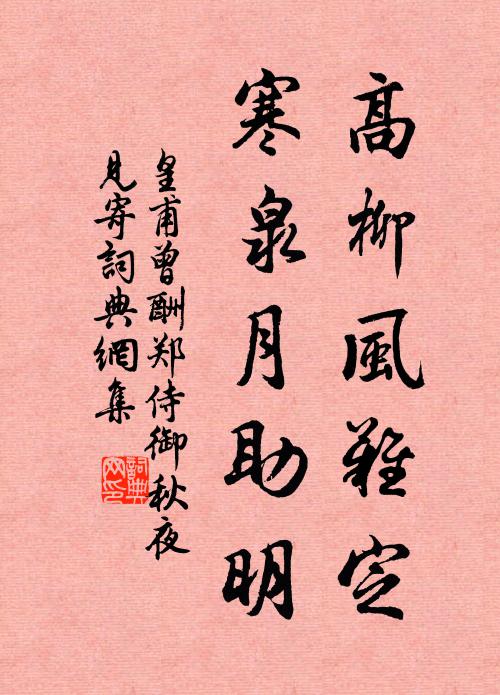 高柳風難定
寒泉月助明
皇甫曾酬郑侍御秋夜
見寄詞典網集
詞典
网印